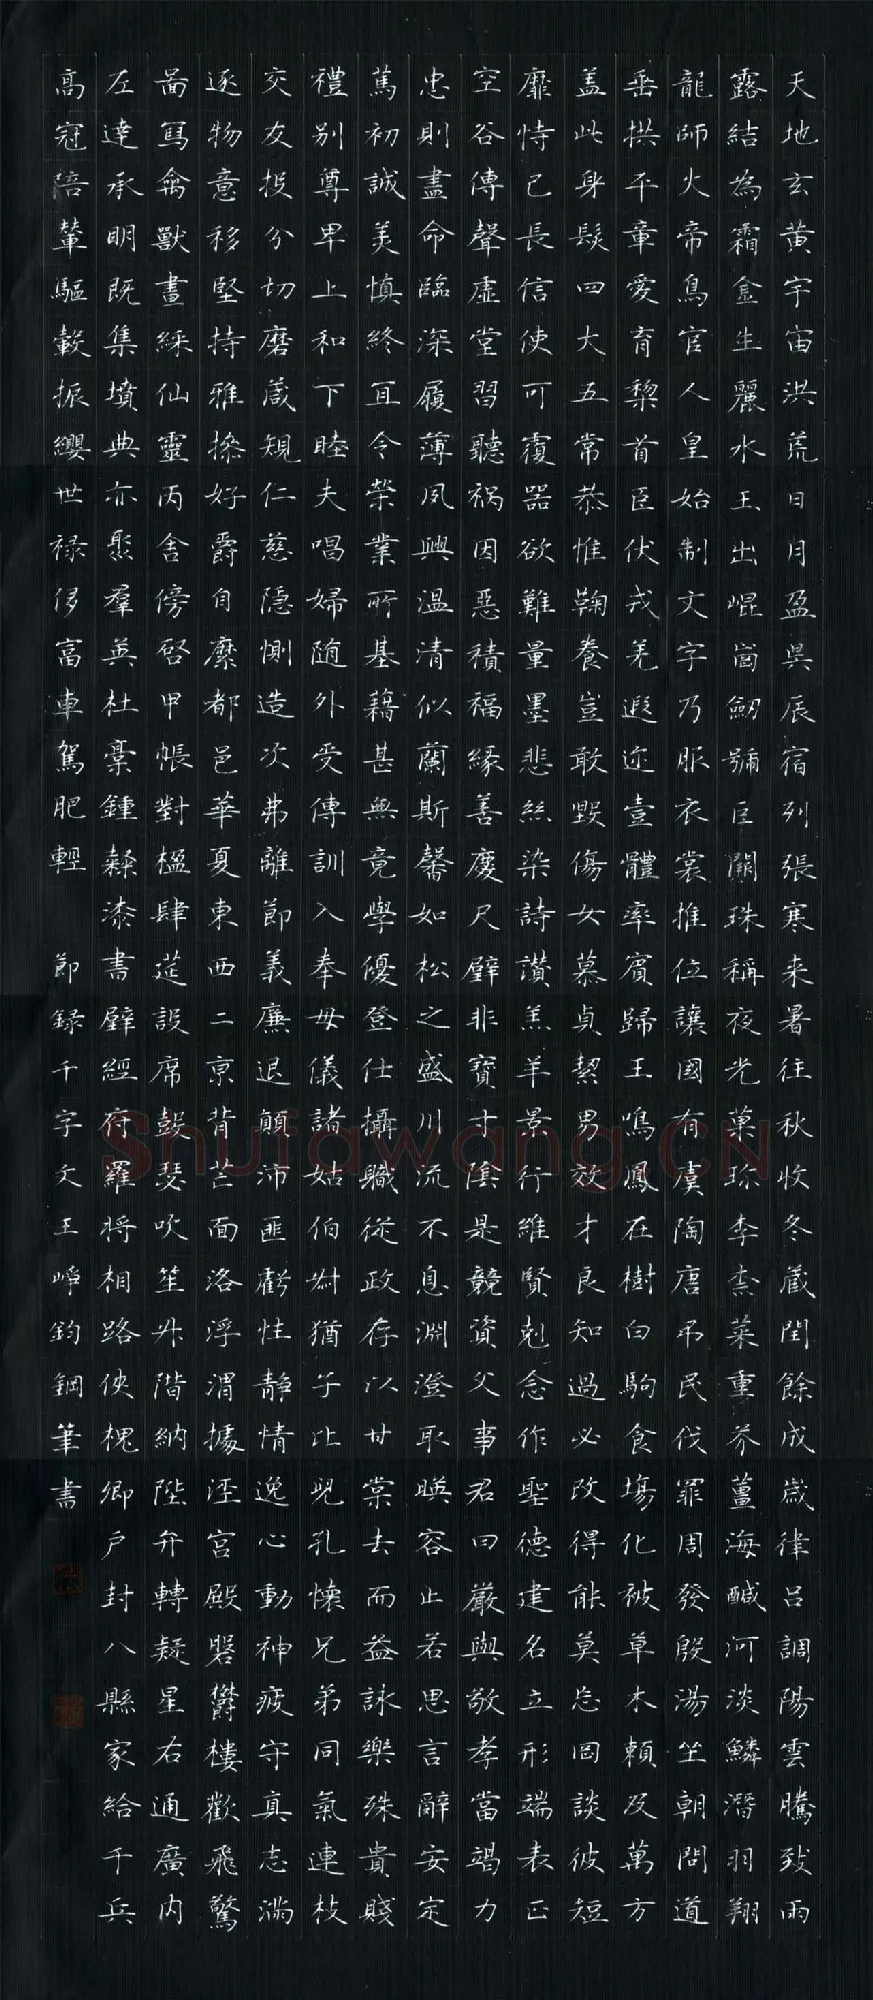 天地玄黄宇宙洪荒日月盈昃辰宿列張寒来暑往秋收冬蔵閏餘成歲律吕調陽雲騰致雨
露結為霜金生麗水玉出崐崗劒號巨闕珠稱夜光菓珎李柰菜重芥薑海醎河淡鱗潛羽翔
龍師火帝鳥官人皇始制文字乃服衣裳推位讓國有虞陶唐弔民伐罪周發殷湯坐朝問道
垂拱平章愛育黎首臣伏戎羌遐迩壹體率賓歸王鳴鳳在樹白駒食場化被草木頼及萬方
盖此身髮四大五常恭惟鞠養豈敢毀傷女慕貞絜男效才良知過必改得能莫忘罔談彼短
靡恃己長信使可覆器欲難量墨悲絲染詩讚羔羊景行維賢剋念作聖德建名立形端表正
空谷傳聲虛堂習聽禍因惡積福緣善慶尺璧非寶寸陰是競資父事君曰嚴與敬孝當竭力
忠則盡命臨深履薄夙興温凊似蘭斯馨如松之盛川流不息淵澄取暎容止若思言辭安定
篤初誠美慎終宜令榮業所基藉甚無竟學優登仕攝職從政存以甘棠去而益詠樂殊貴賤
禮别尊卑上和下睦夫唱婦随外受傳訓入奉母儀諸姑伯叔猶子比兒孔懷兄弟同氣連枝
交友投分切磨箴規仁慈隱惻造次弗離節義廉退顛沛匪虧性静情逸心動神疲守真志滿
逐物意移堅持雅操好爵自縻都邑華夏東西二京背芒面洛浮渭據涇宫殿磐欝樓觀飛驚
圖寫禽獸畫綵仙靈丙舍傍啓甲帳對楹肆莚設席鼓瑟吹笙升階納陛弁轉疑星右通廣内
左達承明既集墳典亦聚羣英杜稾鍾隸漆書壁經府羅将相路俠槐卿户封八縣家給千兵
高冠陪輦驅轂振纓世禄侈富車駕肥輕 節録千字文王崢鈞鋼筆書
Shufawang.CN